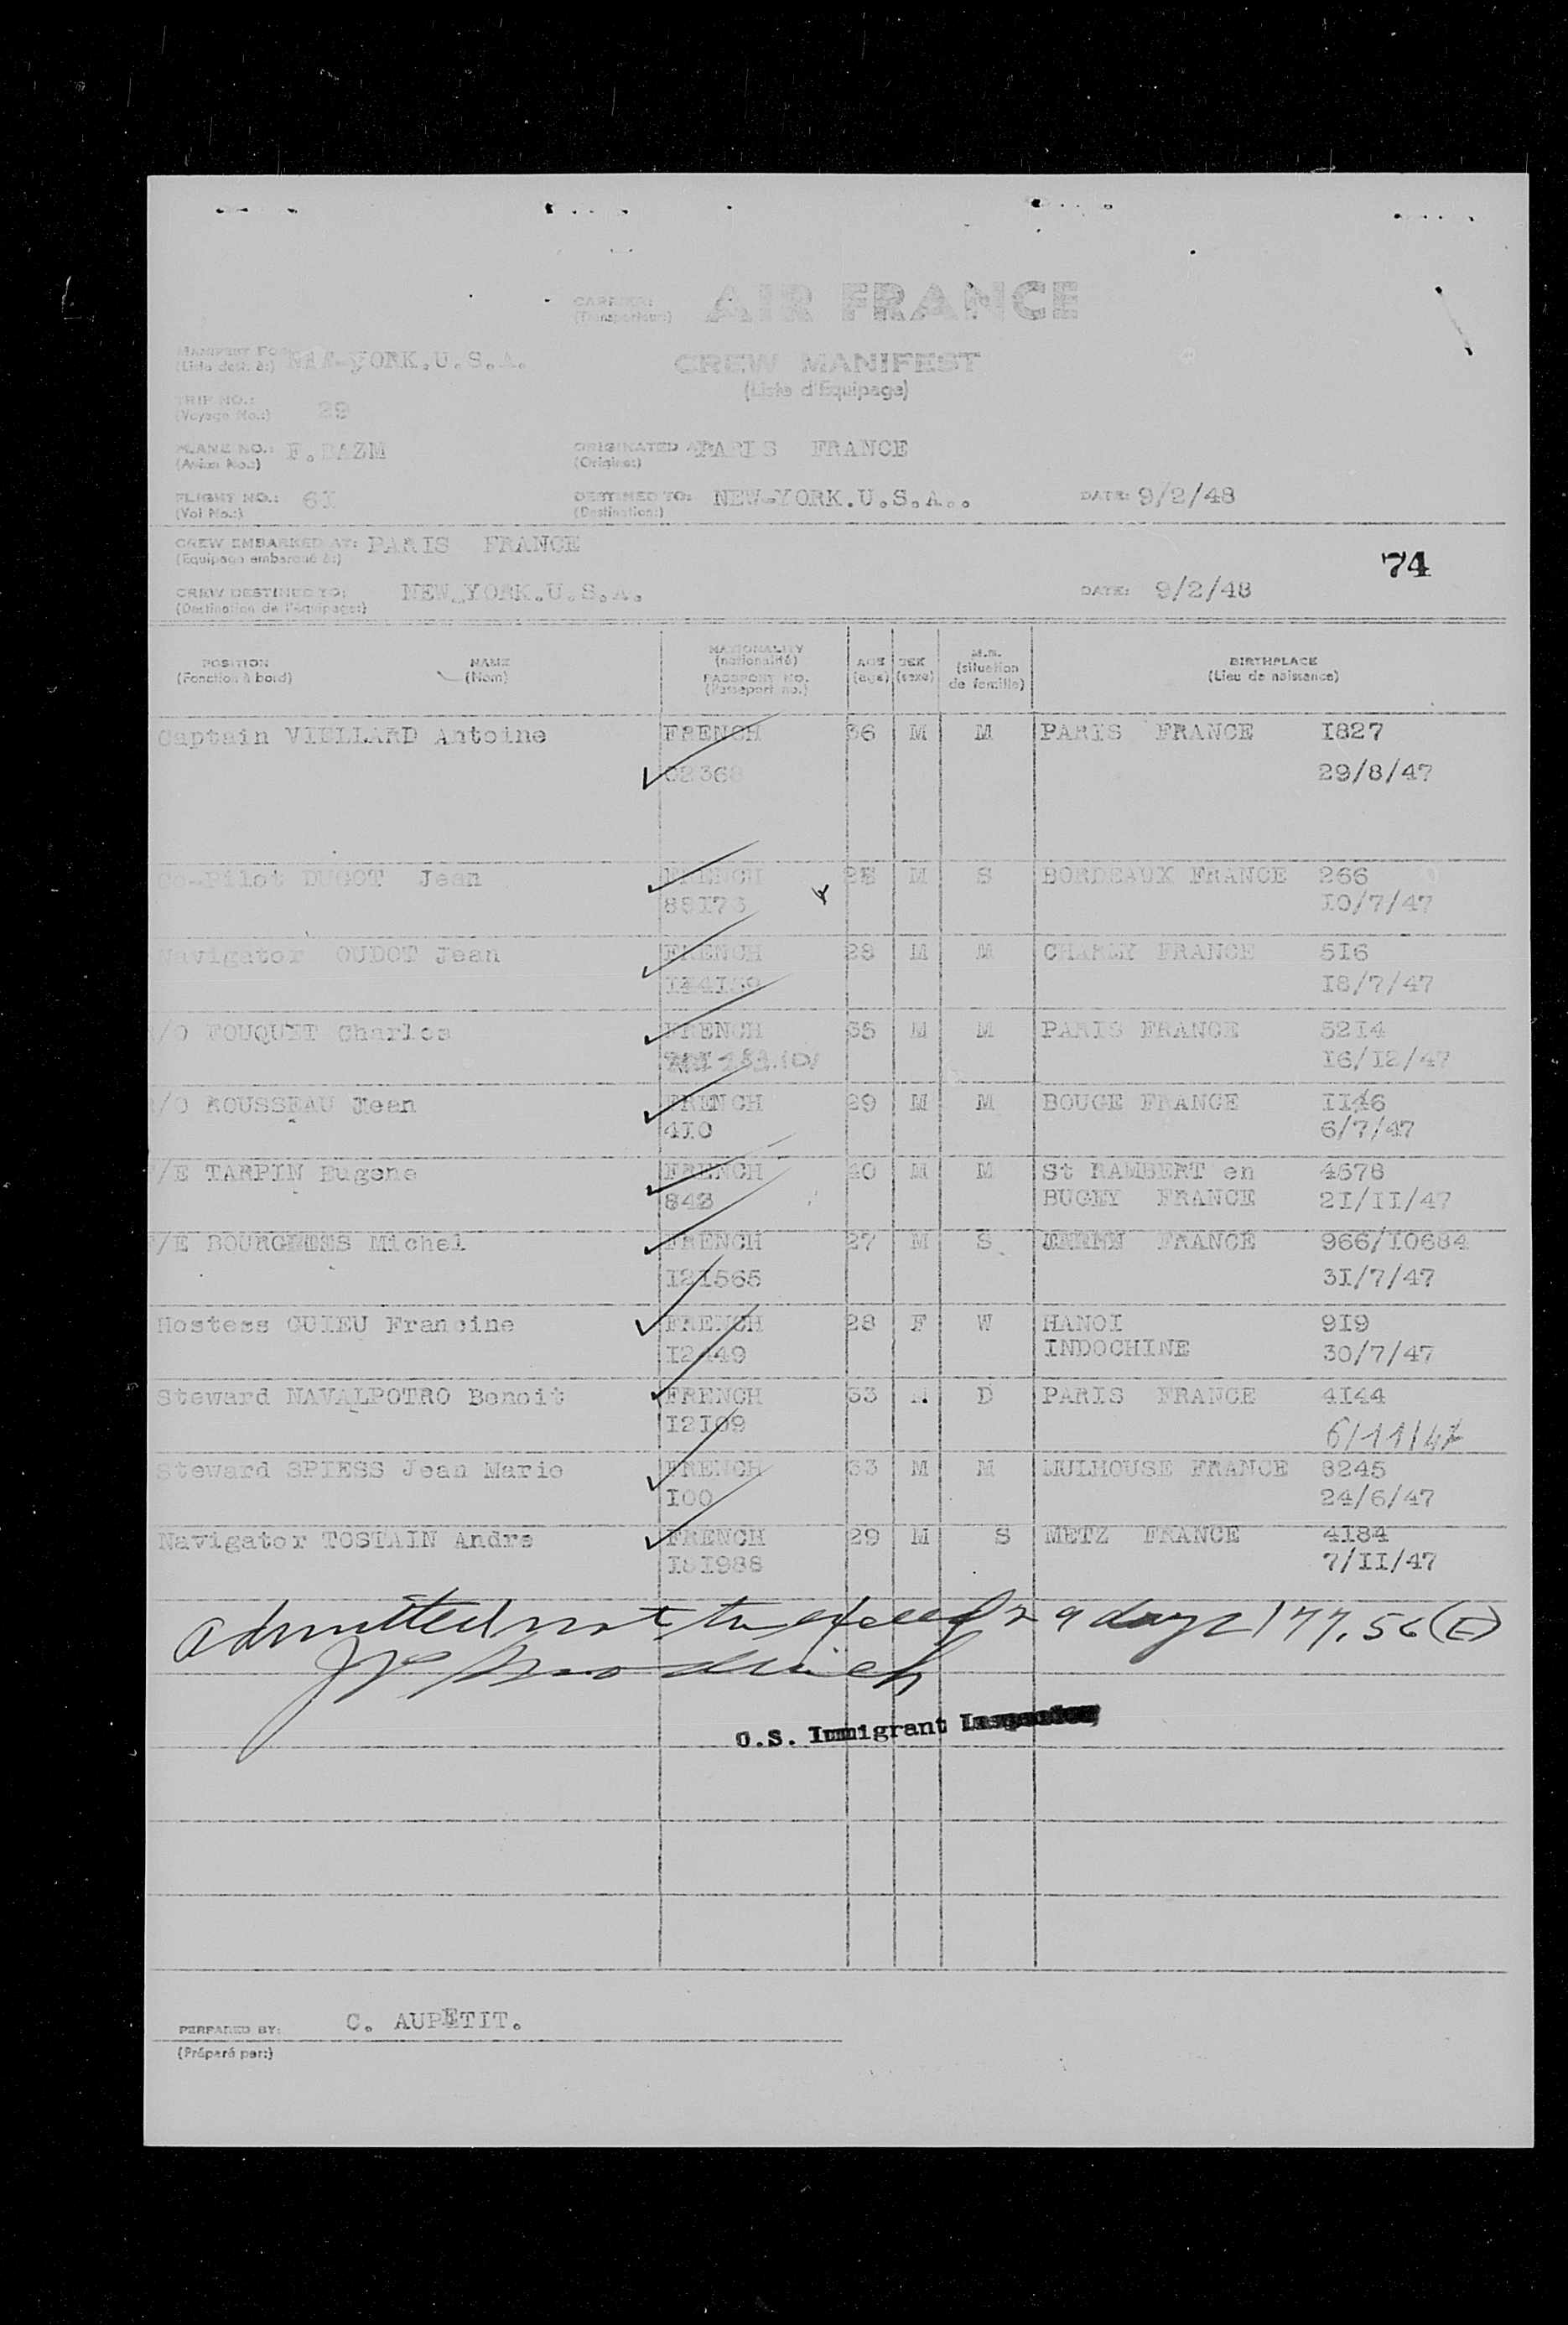 CARRIER: AIR FRANCE
(Transporteur:)
MANIFEST FOR: NEW-YORK.U.S.A. CREW MANIFEST
(Liste dest. à:) (Liste d'Equipage)
TRIP NO.: 29
(Voyage No.:)
PLANE NO.: F.BAZM ORIGINATED AT: PARIS FRANCE
(Avion No.:) (Origine:)
FLIGHT NO.: 6I DESTINED TO: NEW-YORK.U.S.A.. DATE: 9/2/48
(Vol No.:) (Destination:)
CREW EMBARKED AT: PARIS FRANCE
(Equipage embarqué à:) 74
CREW DESTINED TO: NEW-YORK.U.S.A. DATE: 9/2/48
(Destination de l'équipage:)
POSITION NAME NATIONALITY AGE SEX M.S. BIRTHPLACE
(Fonction à bord) (Nom) (nationalité) (age) (sexe) (situation de famille) (Lieu de naissance)
PASSPORT NO.
(Passeport no.)
Captain VIELLARD Antoine FRENCH 36 M M PARIS FRANCE I827
02368 29/8/47
Co-Pilot DUGOT Jean FRENCH 28 M S BORDEAUX FRANCE 266
10/7/47
Navigator OUDOT Jean FRENCH 28 M M CHARLY FRANCE 5I6
I8/7/47
/O FOUQUET Charles FRENCH 35 M M PARIS FRANCE 52I4
I6/I2/47
/O ROUSSEAU Jean FRENCH 29 M M BOUGE FRANCE II46
4I0 6/7/47
/E TARPIN Eugene FRENCH 40 M M St RAMBERT en 4678
BUGEY FRANCE 2I/II/47
/E Michel FRENCH 27 M S FRANCE 966/I0684
I2I565 3I/7/47
Hostess GUIEU Francine FRENCH 28 F W HANOI 9I9
I2449 INDOCHINE 30/7/47
Steward NAVALPOTRO Benoit FRENCH 33 M D PARIS FRANCE 4I44
I2I09 6/11/47
Steward SPIESS Jean Marie FRENCH 33 M M MULHOUSE FRANCE 8245
I00 24/6/47
Navigator TOSTAIN Andre FRENCH 29 M S METZ FRANCE 4I84
I8I988 7/II/47
admitted not to exceed 29 days 177.56(E)
U.S. Immigrant Inspector
PERPARED BY: C. AUPETIT.
(Préparé par:)